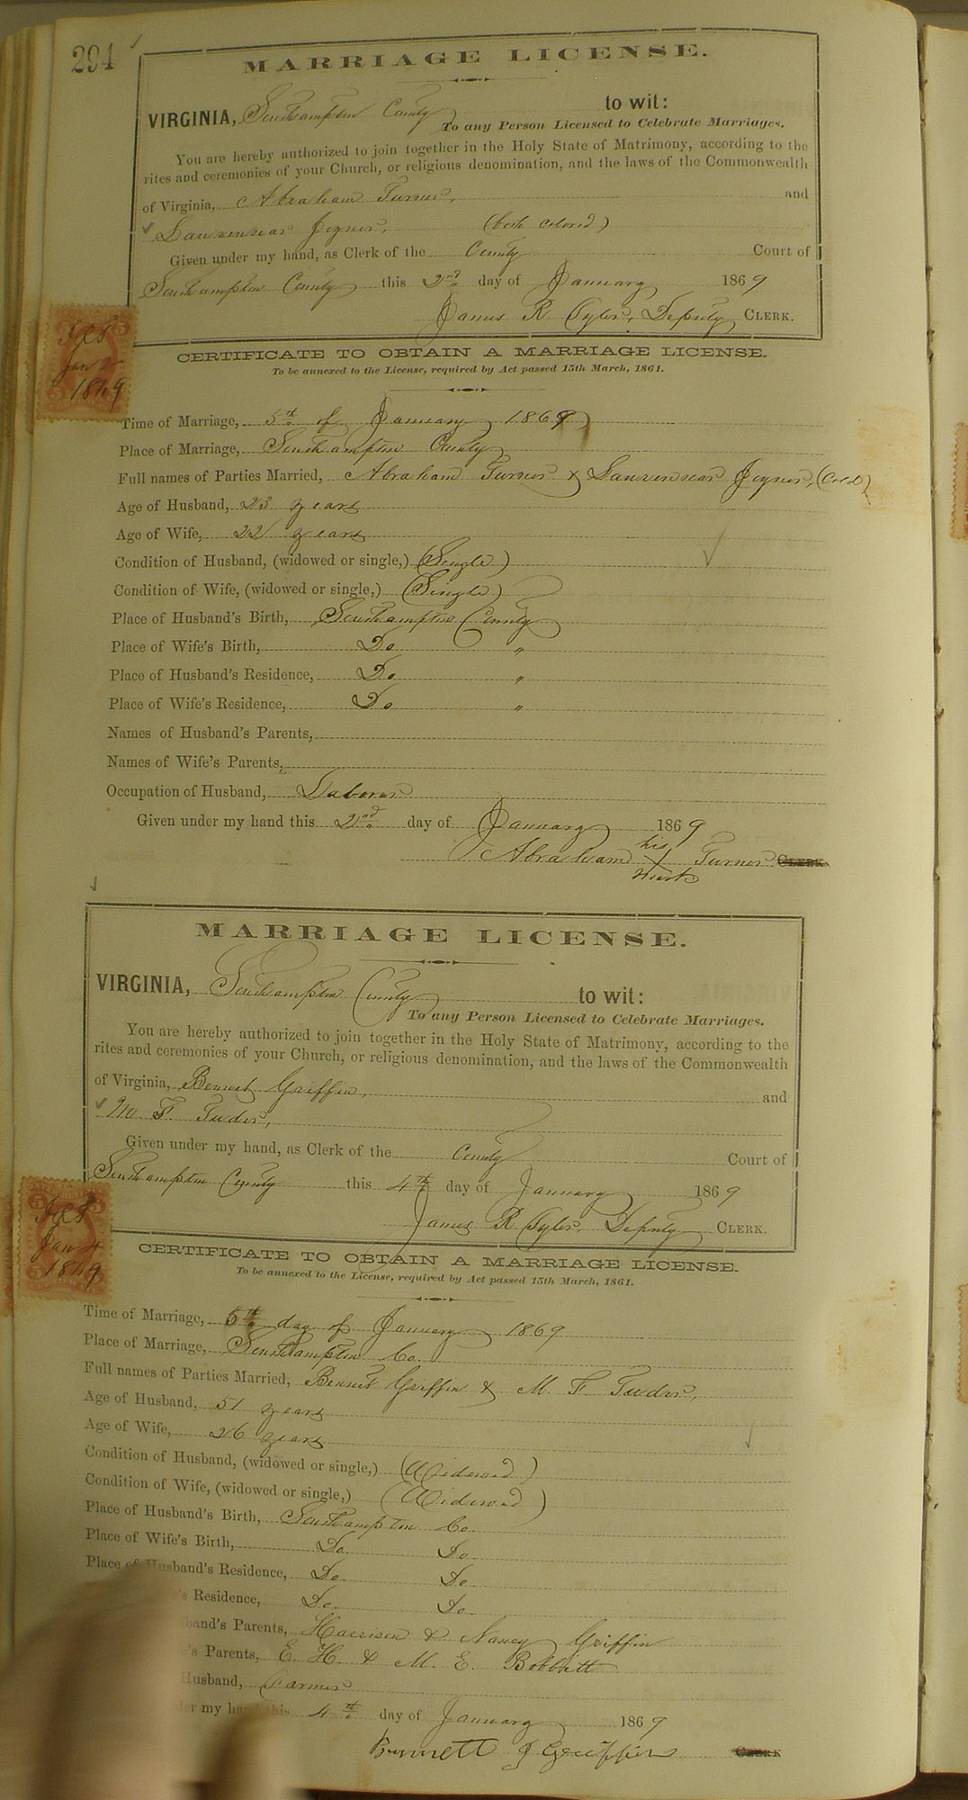 294
MARRIAGE LICENSE.
VIRGINIA, Southampton County to wit:
To any Person Licensed to Celebrate Marriages.
You are hereby authorized to join together in the Holy State of Matrimony, according to the
rites and ceremonies of your Church, or religious denomination, and the laws of the Commonwealth
of Virginia, Abraham Turner, and
Joyner, (both colored)
Given under my hand, as Clerk of the County Court of
Southampton County this 2nd day of January 1869
James R Tyler, Deputy CLERK.
CERTIFICATE TO OBTAIN A MARRIAGE LICENSE.
To be annexed to the License, required by Act passed 15th March, 1861.
Jan 2
1869
Time of Marriage, 5th of January 1869
Place of Marriage, Southampton County
Full names of Parties Married, Abraham Turner & Joyner, (Cold)
Age of Husband, 23 years
Age of Wife, 22 years
Condition of Husband, (widowed or single,) (Single)
Condition of Wife, (widowed or single,) (Single)
Place of Husband's Birth, Southampton County
Place of Wife's Birth, Do "
Place of Husband's Residence, Do "
Place of Wife's Residence, Do "
Names of Husband's Parents,
Names of Wife's Parents,
Occupation of Husband, Laborer
Given under my hand this 2nd day of January 1869
his
Abraham X Turner CLERK
mark
MARRIAGE LICENSE.
VIRGINIA, Southampton County to wit:
To any Person Licensed to Celebrate Marriages.
You are hereby authorized to join together in the Holy State of Matrimony, according to the
rites and ceremonies of your Church, or religious denomination, and the laws of the Commonwealth
of Virginia, Bennet Griffin, and
M. F. Tudor,
Given under my hand, as Clerk of the County Court of
Southampton County this 4th day of January 1869
James R Tyler, Deputy CLERK.
CERTIFICATE TO OBTAIN A MARRIAGE LICENSE.
To be annexed to the License, required by Act passed 15th March, 1861.
Jan 4
1869
Time of Marriage, 5th day of January 1869
Place of Marriage, Southampton Co.
Full names of Parties Married, Bennet Griffin & M. F. Tudor,
Age of Husband, 51 years
Age of Wife, 26 years
Condition of Husband, (widowed or single,) (Widowed)
Condition of Wife, (widowed or single,) (Widowed)
Place of Husband's Birth, Southampton Co.
Place of Wife's Birth, Do. Do.
Place of Husband's Residence, Do. Do.
's Residence, Do. Do.
band's Parents, Harrison & Nancy Griffin
's Parents, E. H. & M. E. Bobbitt
Husband, Farmer
der my hand this 4th day of January 1869
Bennett J Griffin CLERK